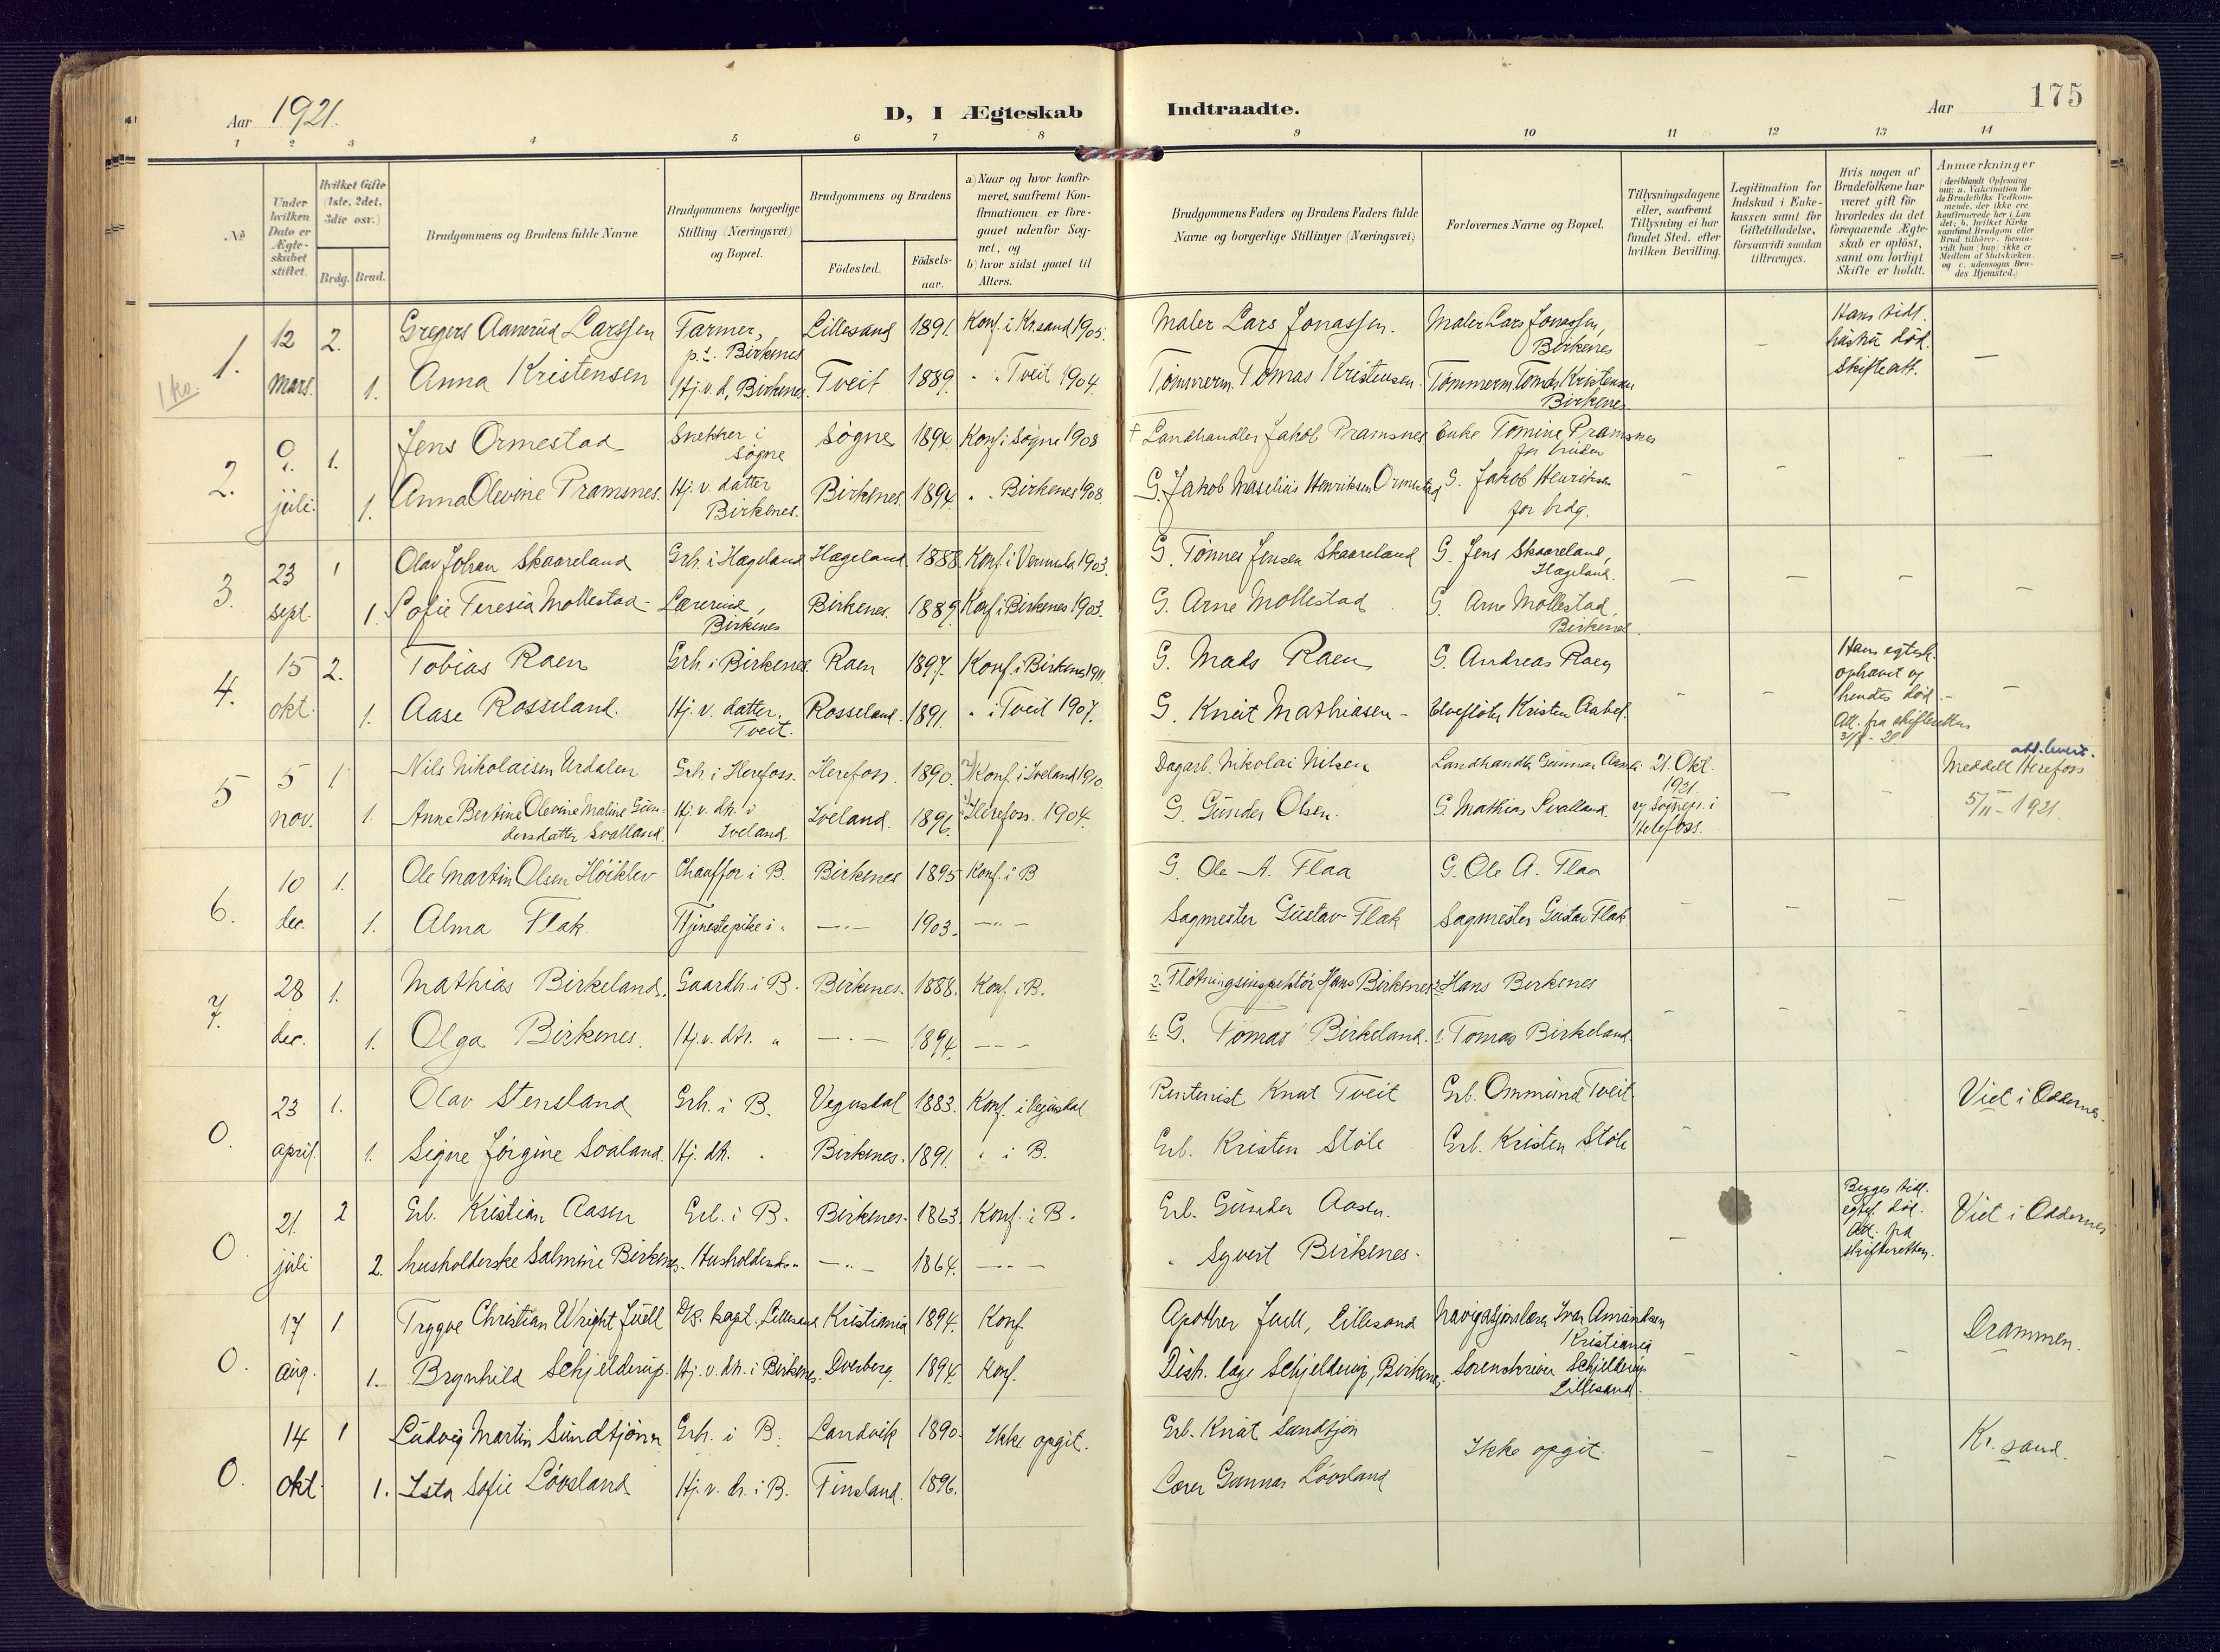 Aar 1921.
D, I Ægteskab Indtraadte.
Aar 175
1 2 3 4 5 6 7 8 9 10 11 12 13 14
No
Under hvilken Dato er Ægteskabet stiftet.
Hvilket Gifte (1ste, 2det, 3die osv.)
Brdg. Brud.
Brudgommens og Brudens fulde Navne
Brudgommens borgerlige Stilling (Næringsvei) og Bopæl.
Brudgommens og Brudens
Födested. Födselsaar.
a) Naar og hvor konfirmeret, saafremt Konfirmationen er foregaaet udenfor Sognet, og
b) hvor sidst gaaet til Alters.
Brudgommens Faders og Brudens Faders fulde Navne og borgerlige Stillinger (Næringsvei)
Forlovernes Navne og Bopæl.
Tillysningsdagene eller, saafremt Tillysning ei har fundet Sted, efter hvilken Bevilling.
Legitimation for Indskud i Enkekassen samt for Giftetilladelse, forsaavidt saadan tiltrænges.
Hvis nogen af Brudefolkene har været gift för hvorledes da det foregaaende Ægteskab er oplöst, samt om lovligt Skifte er holdt.
Anmærkninger (deriblandt Oplysning om: a. Vakcination for de Brudefolks Vedkommende, der ikke ere konfirmerede her i Landet; b. hvilket Kirkesamfund Brudgom eller Brud tilhörer, forsaavidt han (hun) ikke er Medlem af Statskirken, og c. udensogns Brudes Hjemsted.)
1. 12 2. Gregers Aanerud Larssen Farmer, Lillesand 1891. Konf. i Kr.sand 1905. Maler Lars Jonassen. Maler Lars Jonassen, Birkenes – Hans tidl. hustru död. Skifteatt. –
p.t. Birkenes
1 ko. mars. 1. Anna Kristensen Hj.v.d, Birkenes. Tveit 1889. " " Tveit 1904. Tömmerm. Tomas Kristensen. Tömmerm. Tomas Kristensen Birkenes
2. 9. 1. Jens Ormestad Snekker i Søgne Søgne 1894. Konf. i Søgne 1908 † Landhandler Jakob Pramsnes Enke Tomine Pramsnes for bruden
juli. 1. Anna Olevine Pramsnes. Hj. v. datter Birkenes. Birkenes. 1894. " " Birkenes 1908. G. Jakob Maselius Henriksen Ormestad G. Jakob Henriksen for brdg. – – – –
3. 23 1 Olav Johan Skaareland Grb. i Hægeland Hægeland 1888. Konf. i Vennesla 1903. G. Tønnes Jensen Skaareland G. Jens Skaareland, Hægeland.
sept. 1. Sofie Teresia Mollestad Lærerine, Birkenes Birkenes. 1889. Konf i Birkenes 1903. G. Arne Mollestad G. Arne Mollestad, Birkenes. – – – –
4. 15 2. Tobias Raen Grb. i Birkenes Raen 1897. Konf. i Birkenes 1911. G. Mads Raen G. Andreas Raen Hans egtesk. ophævet og hendes død. Att. fra skifteretten
okt. 1. Aase Rosseland. Hj. v. datter, Tveit. Rosseland. 1891. " i Tveit 1907. G. Knut Mathiasen – Elveflöter Kristen Aabel. – – –
5 5 1 Nils Nikolaisen Urdalen Grb. i Herefoss. Herefoss. 1890. Konf. i Iveland 1910. Dagarb. Nikolai Nilsen Landhandler Gunnar 21. Okt. 1921. att. lever. Meddelt Herefoss
nov. 1. Anne Bertine Olevine Maline Gundersdatter Svalland. Hj. v. dtr. i Iveland. Iveland. 1896. Herefoss. 1904. G. Gunder Olsen. G. Mathias Svalland. av Sognepr. i Herefoss. – – 5/11 – 1921.
6. 10 1. Ole Martin Olsen Höiklev Chauffør i B. Birkenes 1895 Konf. i B G. Ole A. Flaa G. Ole A. Flaa
dec. 1. Alma Flak Tjenestepike i " –"– 1903. –"– Sagmester Gustav Flak Sagmester Gustav Flak – – –
7. 28 1. Mathias Birkeland. Gaardb. i B. Birkenes. 1888. Konf. i B. 2. Fløtningsinspektør Hans Birkenes 2. Hans Birkenes
dec. 1. Olga Birkenes. Hj. v. dtr. " –"– 1894. –"– 1. G. Tomas Birkeland. 1. Tomas Birkeland. – – – –
0. 23 1. Olav Stensland Grb. i B. Vegusdal 1883. Konf. i Vegusdal Rentenist Knut Tveit Grb. Ommund Tveit Viet i Oddernes.
april. 1. Signe Jörgine Svaland. Hj. dtr. " Birkenes. 1891. " i B. Grb. Kristen Stöle Grb. Kristen Stöle –
0. 21. 2 Grb. Kristian Aasen Grb. i B. Birkenes. 1863. Konf. i B. Grb. Gunder Aasen. Begges tidl. egtef. död. Att. fra skifteretten. Viet i Oddernes
juli 2. husholderske Salmine Birkenes. Husholderske " –"– 1864. –"– " Syvert Birkenes. –
0. 17 1. Trygve Christian Wright Juell kapt. Lillesand Kristiania 1894. Konf. Apother Juell, Lillesand Navigasjonslærer Ivar Amundsen Kristiania Drammen.
aug. 1. Brynhild Schjelderup. Hj. v. dtr. i Birkenes. Dverberg. 1894. Konf. Distr. læge Schjelderup, Birkenes. Sorenskriver Schjelderup Lillesand. – – –
0. 14 1 Ludvig Martin Sundtjönn Grb. i B. Landvik 1890. Ikke opgit. Grb. Knut Sundtjön Ikke opgit. – – – Kr. sand.
okt. 1. Ista Sofie Lövsland Hj. v. dr. i B. Finsland. 1896. Lærer Gunnar Lövsland